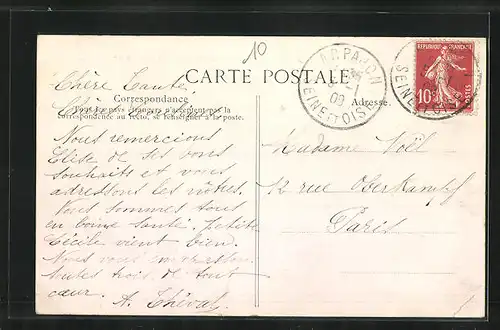 10
CARTE POSTALE
Correspondance
Tous les pays étrangers n'acceptent pas la
correspondance au recto, se renseigner à la poste.
Adresse.
ARPAJON
09
SEINE-ET-OISE
REPUBLIQUE FRANÇAISE
10
POSTES
SEINE
Chère Tante,
Nous remercions
Elise de ses bons
souhaits et vous
adressons les nôtres.
Nous sommes tous
en bonne santé. Petite
Cécile vient bien.
Nous vous
toutes trois de tout
cœur.
A. Théval
Madame Noël
12 rue Oberkampf
Paris